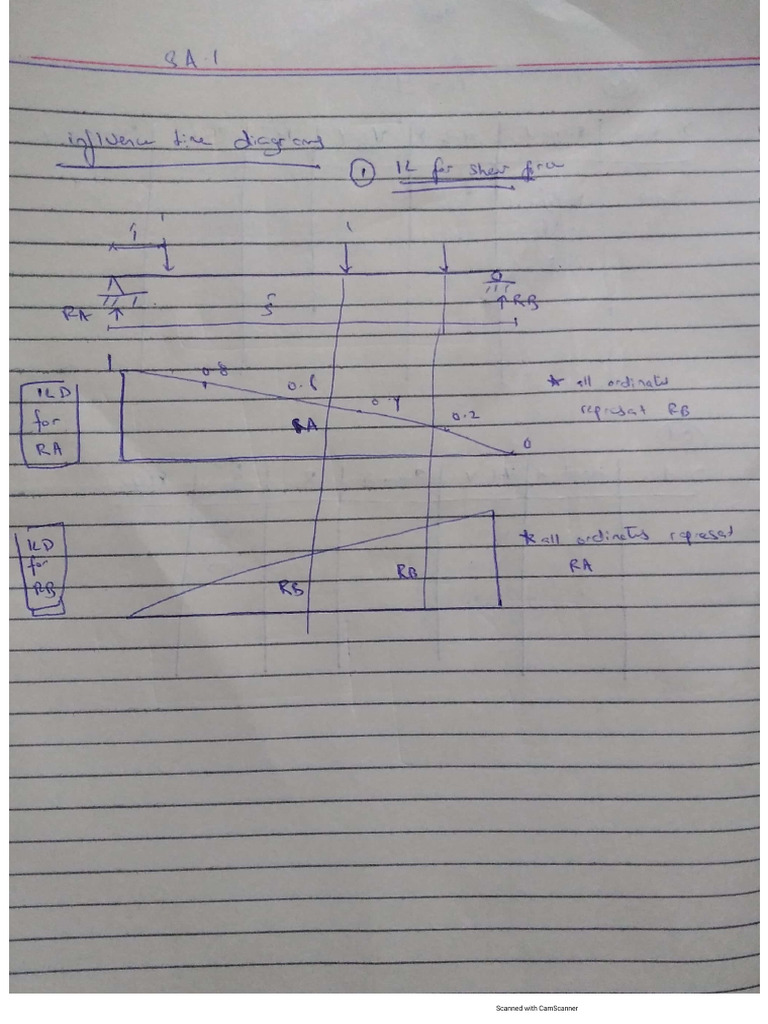 SA.1
influence line diagrams
① IL for shear force
1
1
1
RA
5
RB
1
0.8
0.6
0.4
0.2
0
RA
ILD
for
RA
* all ordinates
represat RB
ILD
for
RB
RB
RB
* all ordinates represat
RA
Scanned with CamScanner